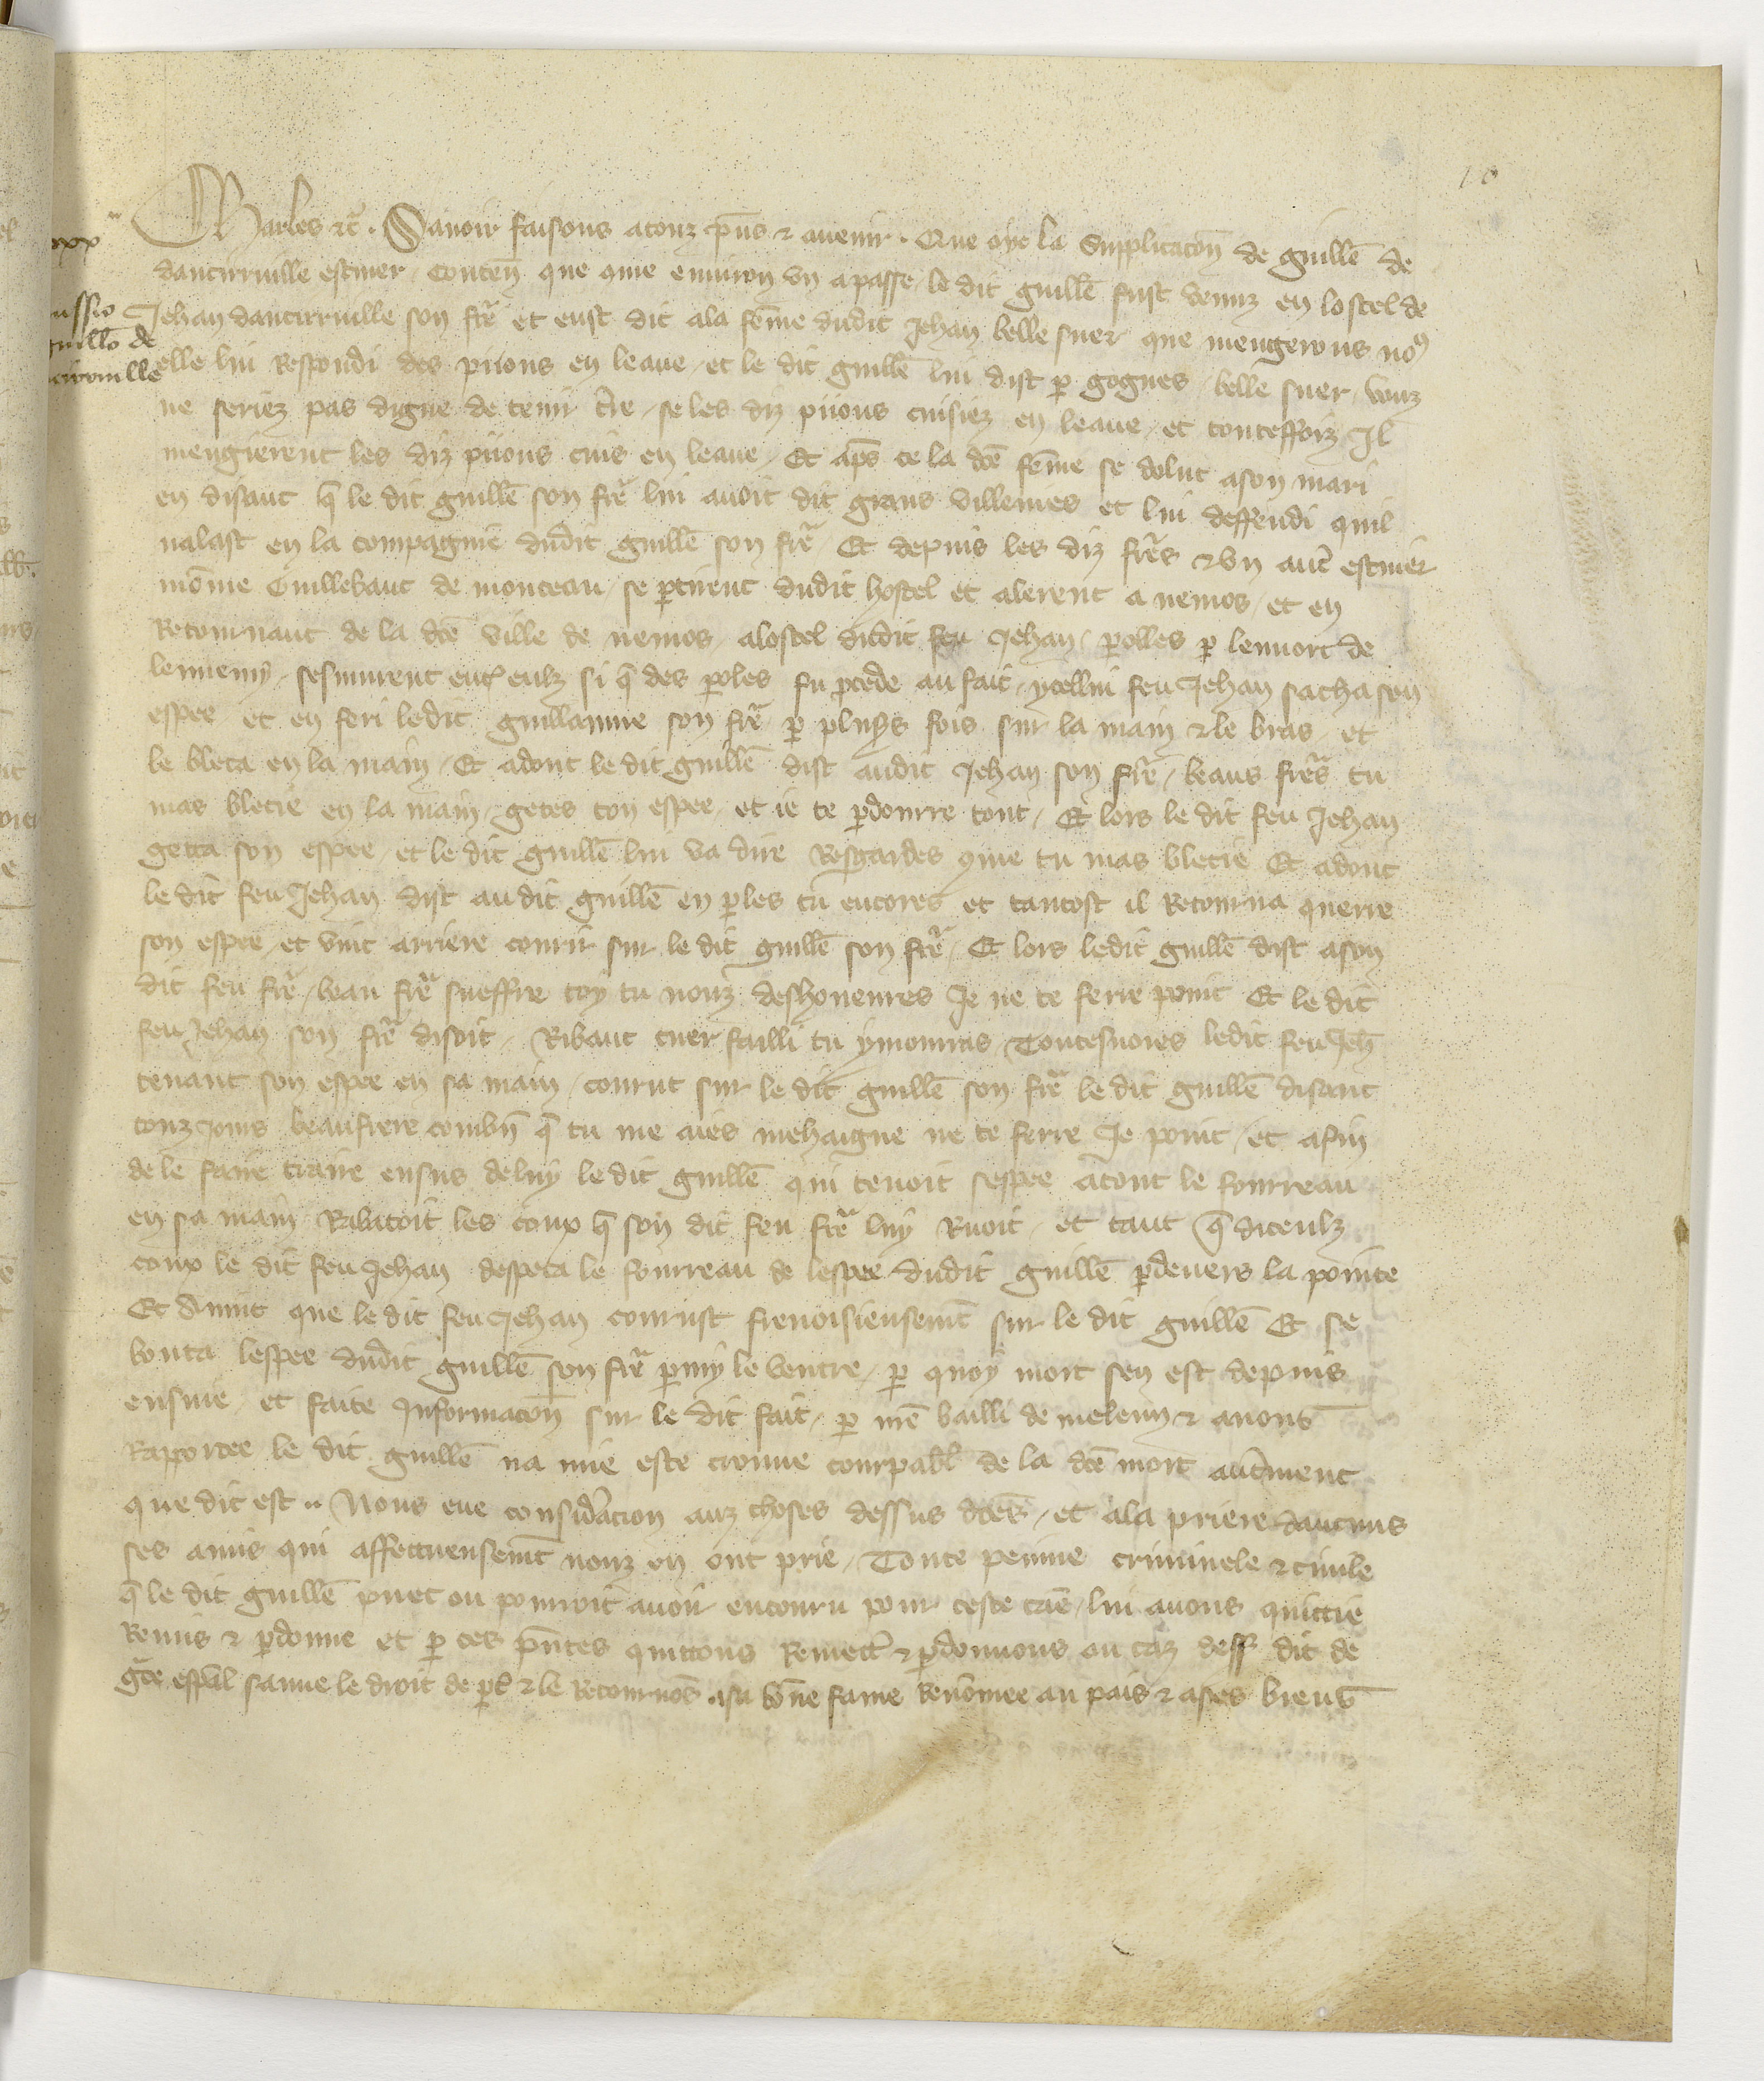 10
xxx
Charles etc̃. Savoir faisons a touz p̃ns et avenir. Que oye la supplicacõn de guill̃e de
dancirville escuier, conteñ que cõme environ un an passe le dit guill̃e fust venuz en lostel de
Jehan dancirville son fr̃e et eust dit ala fẽme dudit Jehan belle suer que mengerons noꝰ
elle lui respondi des pijons en leaue, et le dit guill̃e lui dist ꝑ gogues, belle suer, vouz
ne seriez pas digne de tenir t̃re, se les diz pijons cuisiez en leaue, et touteffoiz Il
mengierent les diz pijons cuis en leaue, Et ap̃s ce la dc̃e fẽme se dolut a son mari
en disant q̃ le dit guill̃e son fr̃e lui avoit dit grans villenies et lui deffendi quil
nalast en la compagnie dudit guill̃e son fr̃e, Et depuis les diz fr̃es et un aut̃ escuier
nõme Guillebaut de monceau, se ꝑtirent dudit hostel et alerent a nemos, et en
Retournant de la dc̃e ville de nemos, alostel dudit feu Jehan, ꝑolles ꝑ lenuort de
lennemy, sesmurent entꝰ eulz si q̃ des ꝑoles fu ꝓcede au fait, ycellui feu Jehan sacha son
espee, et en feri ledit guillaume son fr̃e ꝑ plus̃s fois sur la main et le bras, et
le bleca en la main, Et adont le dit guill̃e dist audit Jehan son fr̃e, beaus fr̃es tu
mas blecie en la main, getes ton espee, et ie te ꝑdonrre tout, Et lors le dit feu Jehan
getta son espee, et le dit guill̃e lui va dire Resgardes cõme tu mas blecie Et adont
le dit feu Jehan dist au dit guill̃e en ꝑles tu encores et tantost il Retourna querre
son espee, et vint arriere courir sur le dit guill̃e son fr̃e, Et lors ledit guill̃e dist a son
dit feu fr̃e, beau fr̃e sueffre toy tu nouz deshoneures Je ne te ferre point Et le dit
feu Jehan son fr̃e disoit, Ribaut cuer failli tu y mourras, Toutesvoies ledit feu Jeh̃
tenant son espee en sa main, courut sur le dit guill̃e son fr̃e le dit guill̃e disant
touz jours beau frere combñ q̃ tu me aies mehaigne ne te ferre Je point, et afin
de le faire traire ensus deluy le dit guill̃e qui tenoit sespee atout le fourreau
en sa main Rabatoit les coux q̃ son dit feu fr̃e luy Ruoit, et tant q̃ diceulz
coux le dit feu Jehan despeca le fourreau de lespee dudit guill̃e ꝑdevers la pointe
Et Avint que le dit feu Jehan courust frenoisieusemt̃ sur le dit guill̃e Et se
bouta lespee dudit guill̃e son fr̃e ꝑmy le ventre, ꝑ quoy mort sen est depuis
ensuie, et faite Informacõn sur le dit fait, ꝑ nr̃e bailli de meleun et a nous
Rapportee le dit guill̃e na mie este trouve courpabl̃ de la dc̃e mort autrement
que dit est.. Nous eue considĩacion auz choses dessus dc̃es, et ala priere daucuns
ses amis qui affectueusemt̃ nouz en ont prie, Toute peinne criminele et civile
q̃ le dit guill̃e puet ou pourroit avoir encouru pour ceste cãe, lui avons quittie
Remis et ꝑdonne et ꝑ ces p̃ntes quittons Remett̃ et ꝑdonnons ou caz dess̃ dit de
gr̃ce esp̃al sauve le droit de ꝑt̃ et le Retournõs a sa bõne fame Renõmee au pais et a ses biens